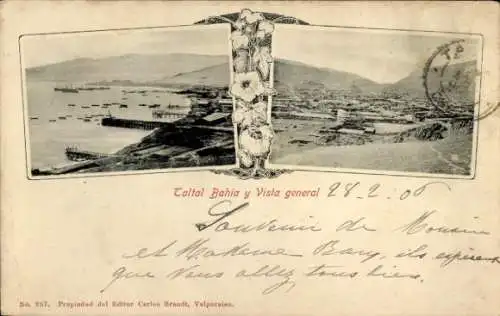 Taltal Bahia y Vista general
28-2-06
Souvenir de Monsieur
et Madame Bary, ils espèrent
que vous allez tous bien,
No. 257. Propiedad del Editor Carlos Brandt, Valparaiso.